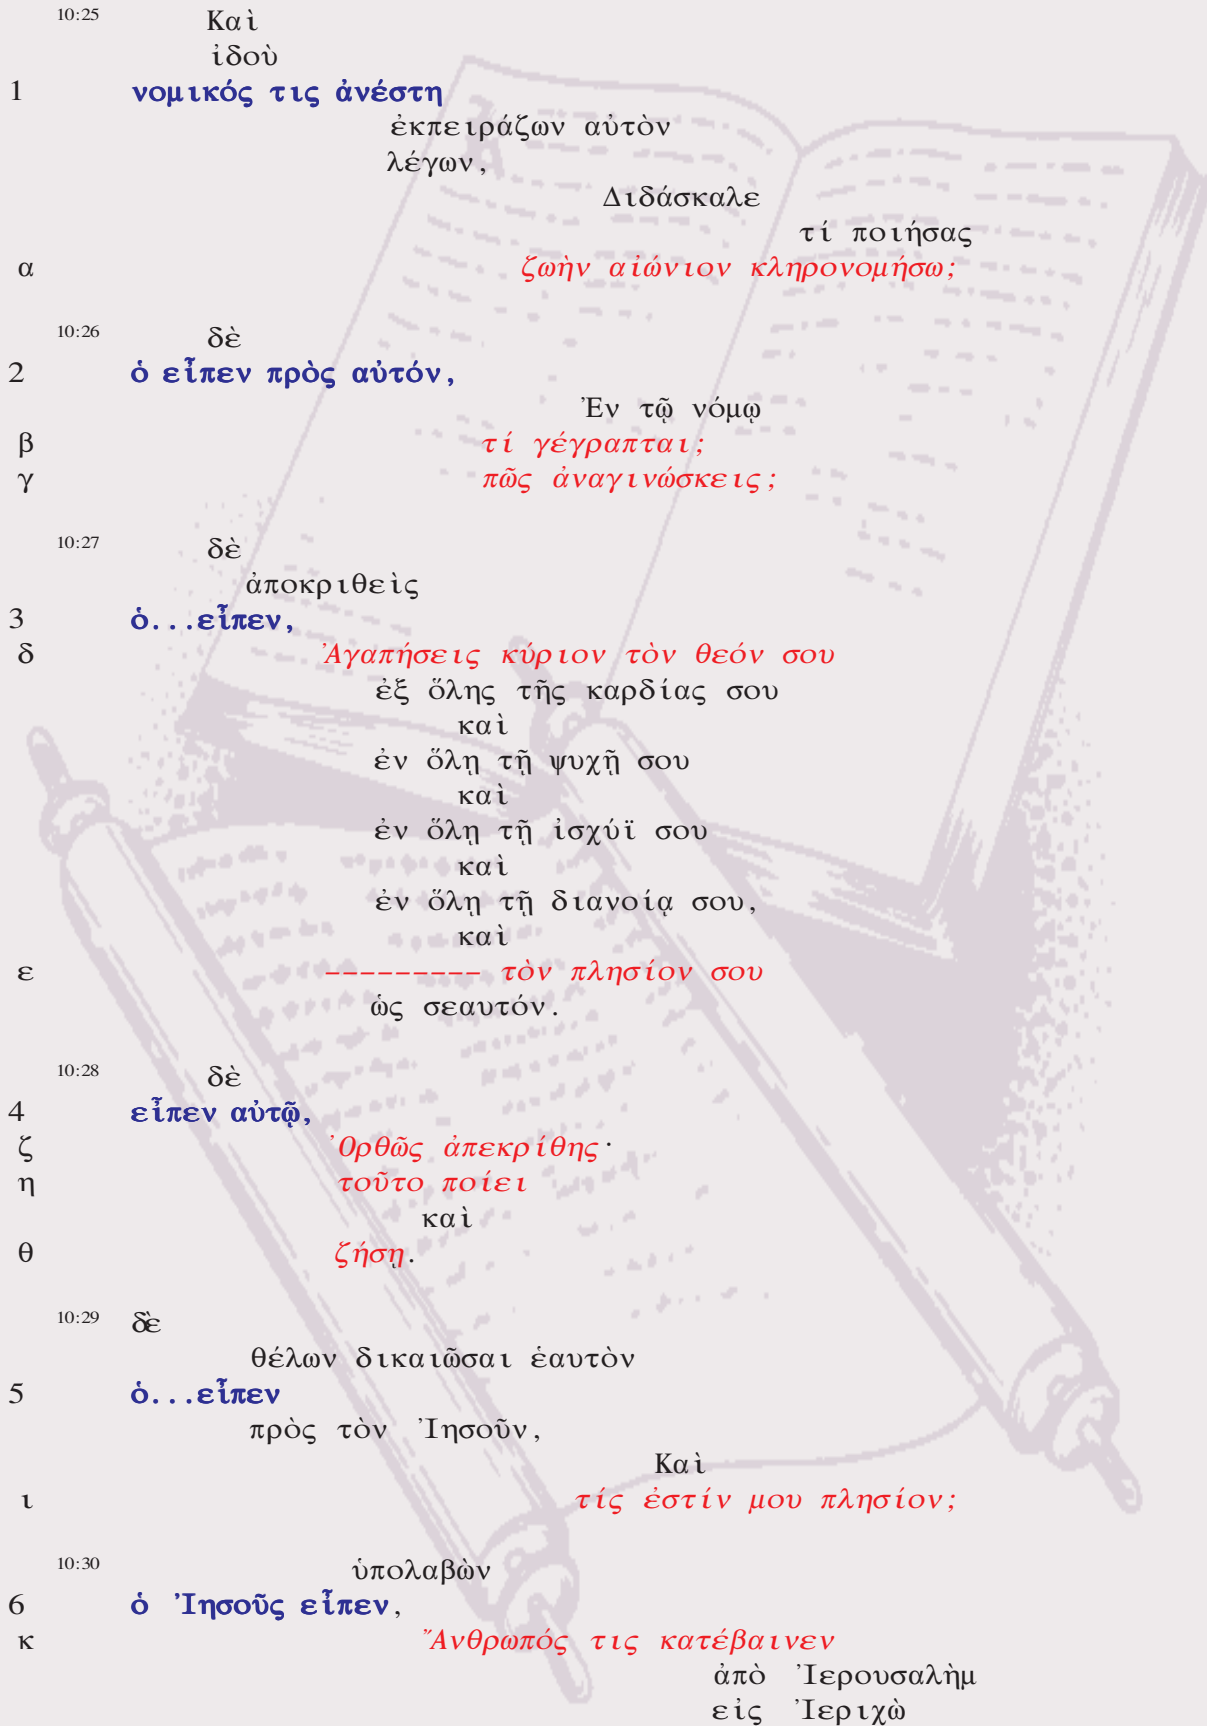 10:25 Καὶ
ἰδοὺ
1 νομικός τις ἀνέστη
ἐκπειράζων αὐτὸν
λέγων,
Διδάσκαλε
τί ποιήσας
α ζωὴν αἰώνιον κληρονομήσω;
10:26 δὲ
2 ὁ εἶπεν πρὸς αὐτόν,
Ἐν τῷ νόμῳ
β τί γέγραπται;
γ πῶς ἀναγινώσκεις;
10:27 δὲ
ἀποκριθεὶς
3 ὁ...εἶπεν,
δ Ἀγαπήσεις κύριον τὸν θεόν σου
ἐξ ὅλης τῆς καρδίας σου
καὶ
ἐν ὅλῃ τῇ ψυχῇ σου
καὶ
ἐν ὅλῃ τῇ ἰσχύϊ σου
καὶ
ἐν ὅλῃ τῇ διανοίᾳ σου,
καὶ
ε --------- τὸν πλησίον σου
ὡς σεαυτόν.
10:28 δὲ
4 εἶπεν αὐτῷ,
ζ Ὀρθῶς ἀπεκρίθης·
η τοῦτο ποίει
καὶ
θ ζήσῃ.
10:29 δὲ
θέλων δικαιῶσαι ἑαυτὸν
5 ὁ...εἶπεν
πρὸς τὸν Ἰησοῦν,
Καὶ
ι τίς ἐστίν μου πλησίον;
10:30 ὑπολαβὼν
6 ὁ Ἰησοῦς εἶπεν,
κ Ἄνθρωπός τις κατέβαινεν
ἀπὸ Ἰερουσαλὴμ
εἰς Ἰεριχὼ